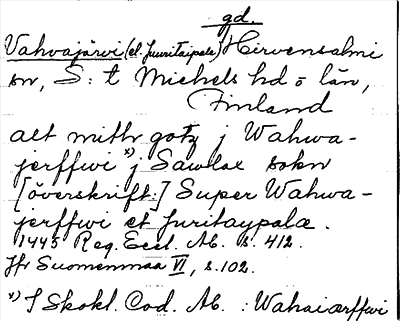 gd.
Vahvajärvi (el. Juuritaipale) Hirvensalmi
sn, S:t Michels hd o län,
Finland
alt mithr gotz j Wahwa-
jerffwi x) j Sawlax sokn
[överskrift:] Super Wahwa-
jerffwi et Juritaypalæ.
1445 Reg. Eccl. Ab. s. 412.
Jfr Suomenmaa VI, s. 102.
x) I Skokl. Cod. Ab. : Wahaiærffwi